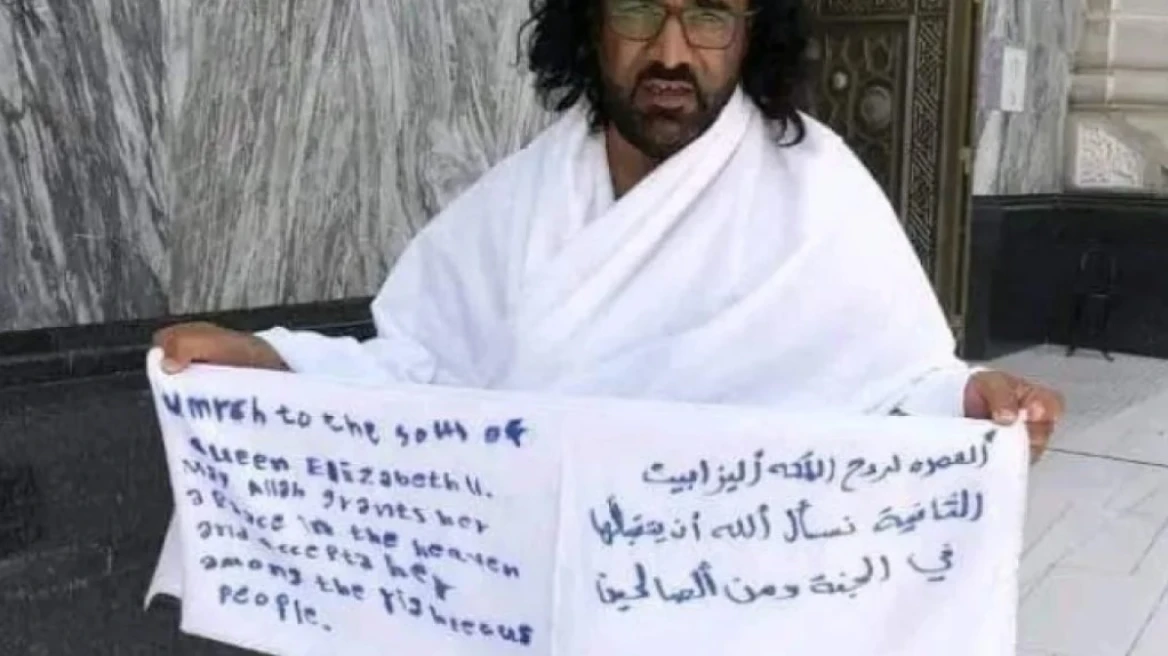 umrah to the soul of
Queen Elizabeth II.
May Allah grants her
a Place in the heaven
and accepta her
among the righteous
people.
ألعمره لروح الملكه أليزابيت
الثانية نسأل ألله أن يتقبلها
في الجنة ومن ألصالحين